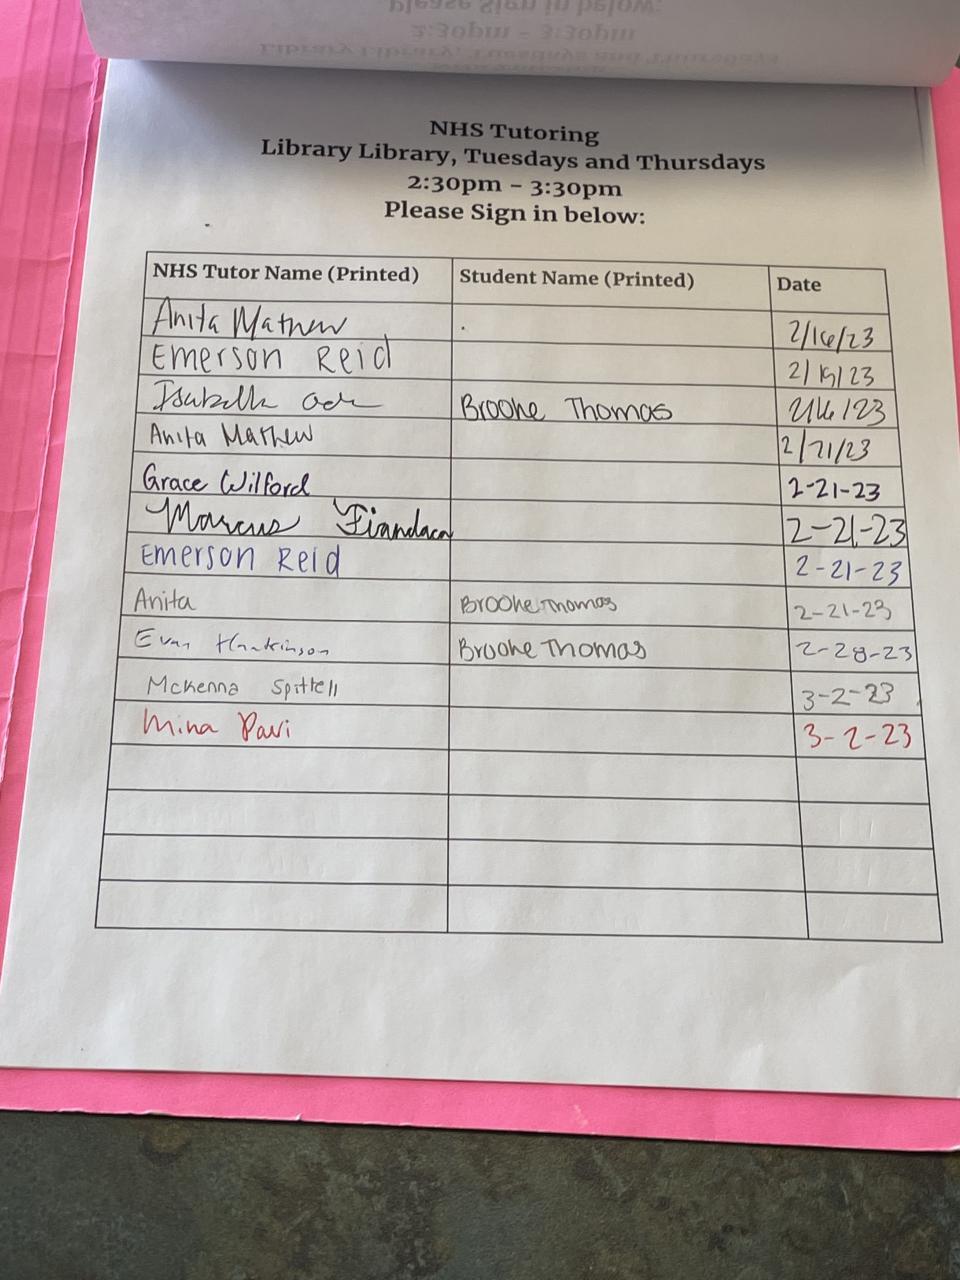 Please Sign in below:
2:30pm - 3:30pm
Library Library, Tuesdays and Thursdays
NHS Tutoring
Library Library, Tuesdays and Thursdays
2:30pm - 3:30pm
Please Sign in below:
NHS Tutor Name (Printed) Student Name (Printed) Date
Anita Mathew 2/16/23
Emerson Reid 2/ /23
Isabella Brooke Thomas 2/16/23
Anita Mathew 2/21/23
Grace Wilford 2-21-23
Marcus Fiandaca 2-21-23
Emerson Reid 2-21-23
Anita Brooke Thomas 2-21-23
Evan Brooke Thomas 2-28-23
Mckenna Spittell 3-2-23
Mina Pavi 3-2-23